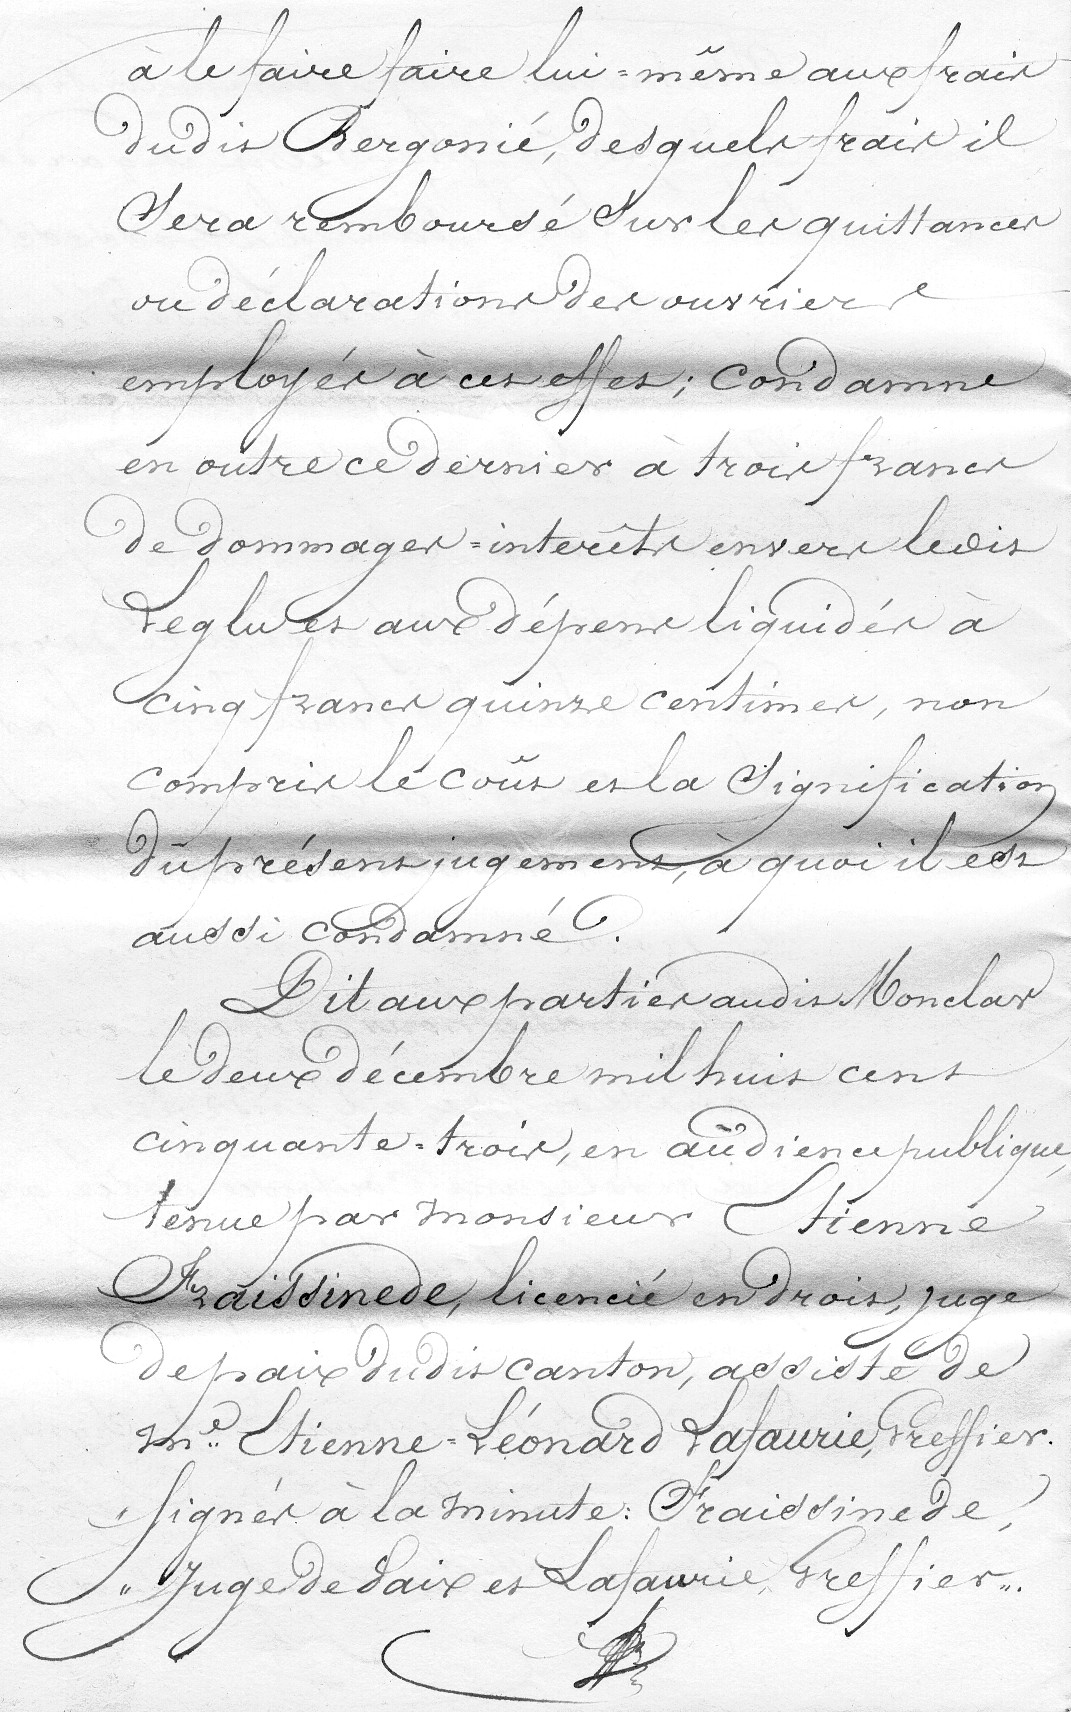 à le faire faire lui=même aux frais
dudit Bergonié, desquels frais il
Sera remboursé Sur les quittances
ou déclarations des ouvriers
employés à cet effet; Condamne
en outre ce dernier à trois francs
de dommages=interêts envers ledit
Leglu et aux dépens liquidés à
cinq francs quinze centimes, non
compris le coût et la Signification
du présent jugement, à quoi il est
aussi condamné.
Dit aux parties audit Monclar
le deux décembre mil huit cent
cinquante=trois, en audience publique,
tenue par monsieur Etienne
Fraissinede, licencié en droit, juge
de paix dudit canton, assisté de
Me. Etienne=Léonard Lafaurie, Greffier.
„ Signés à la minute: Fraissinede,
„ Juge de Paix et Lafaurie, Greffier„.